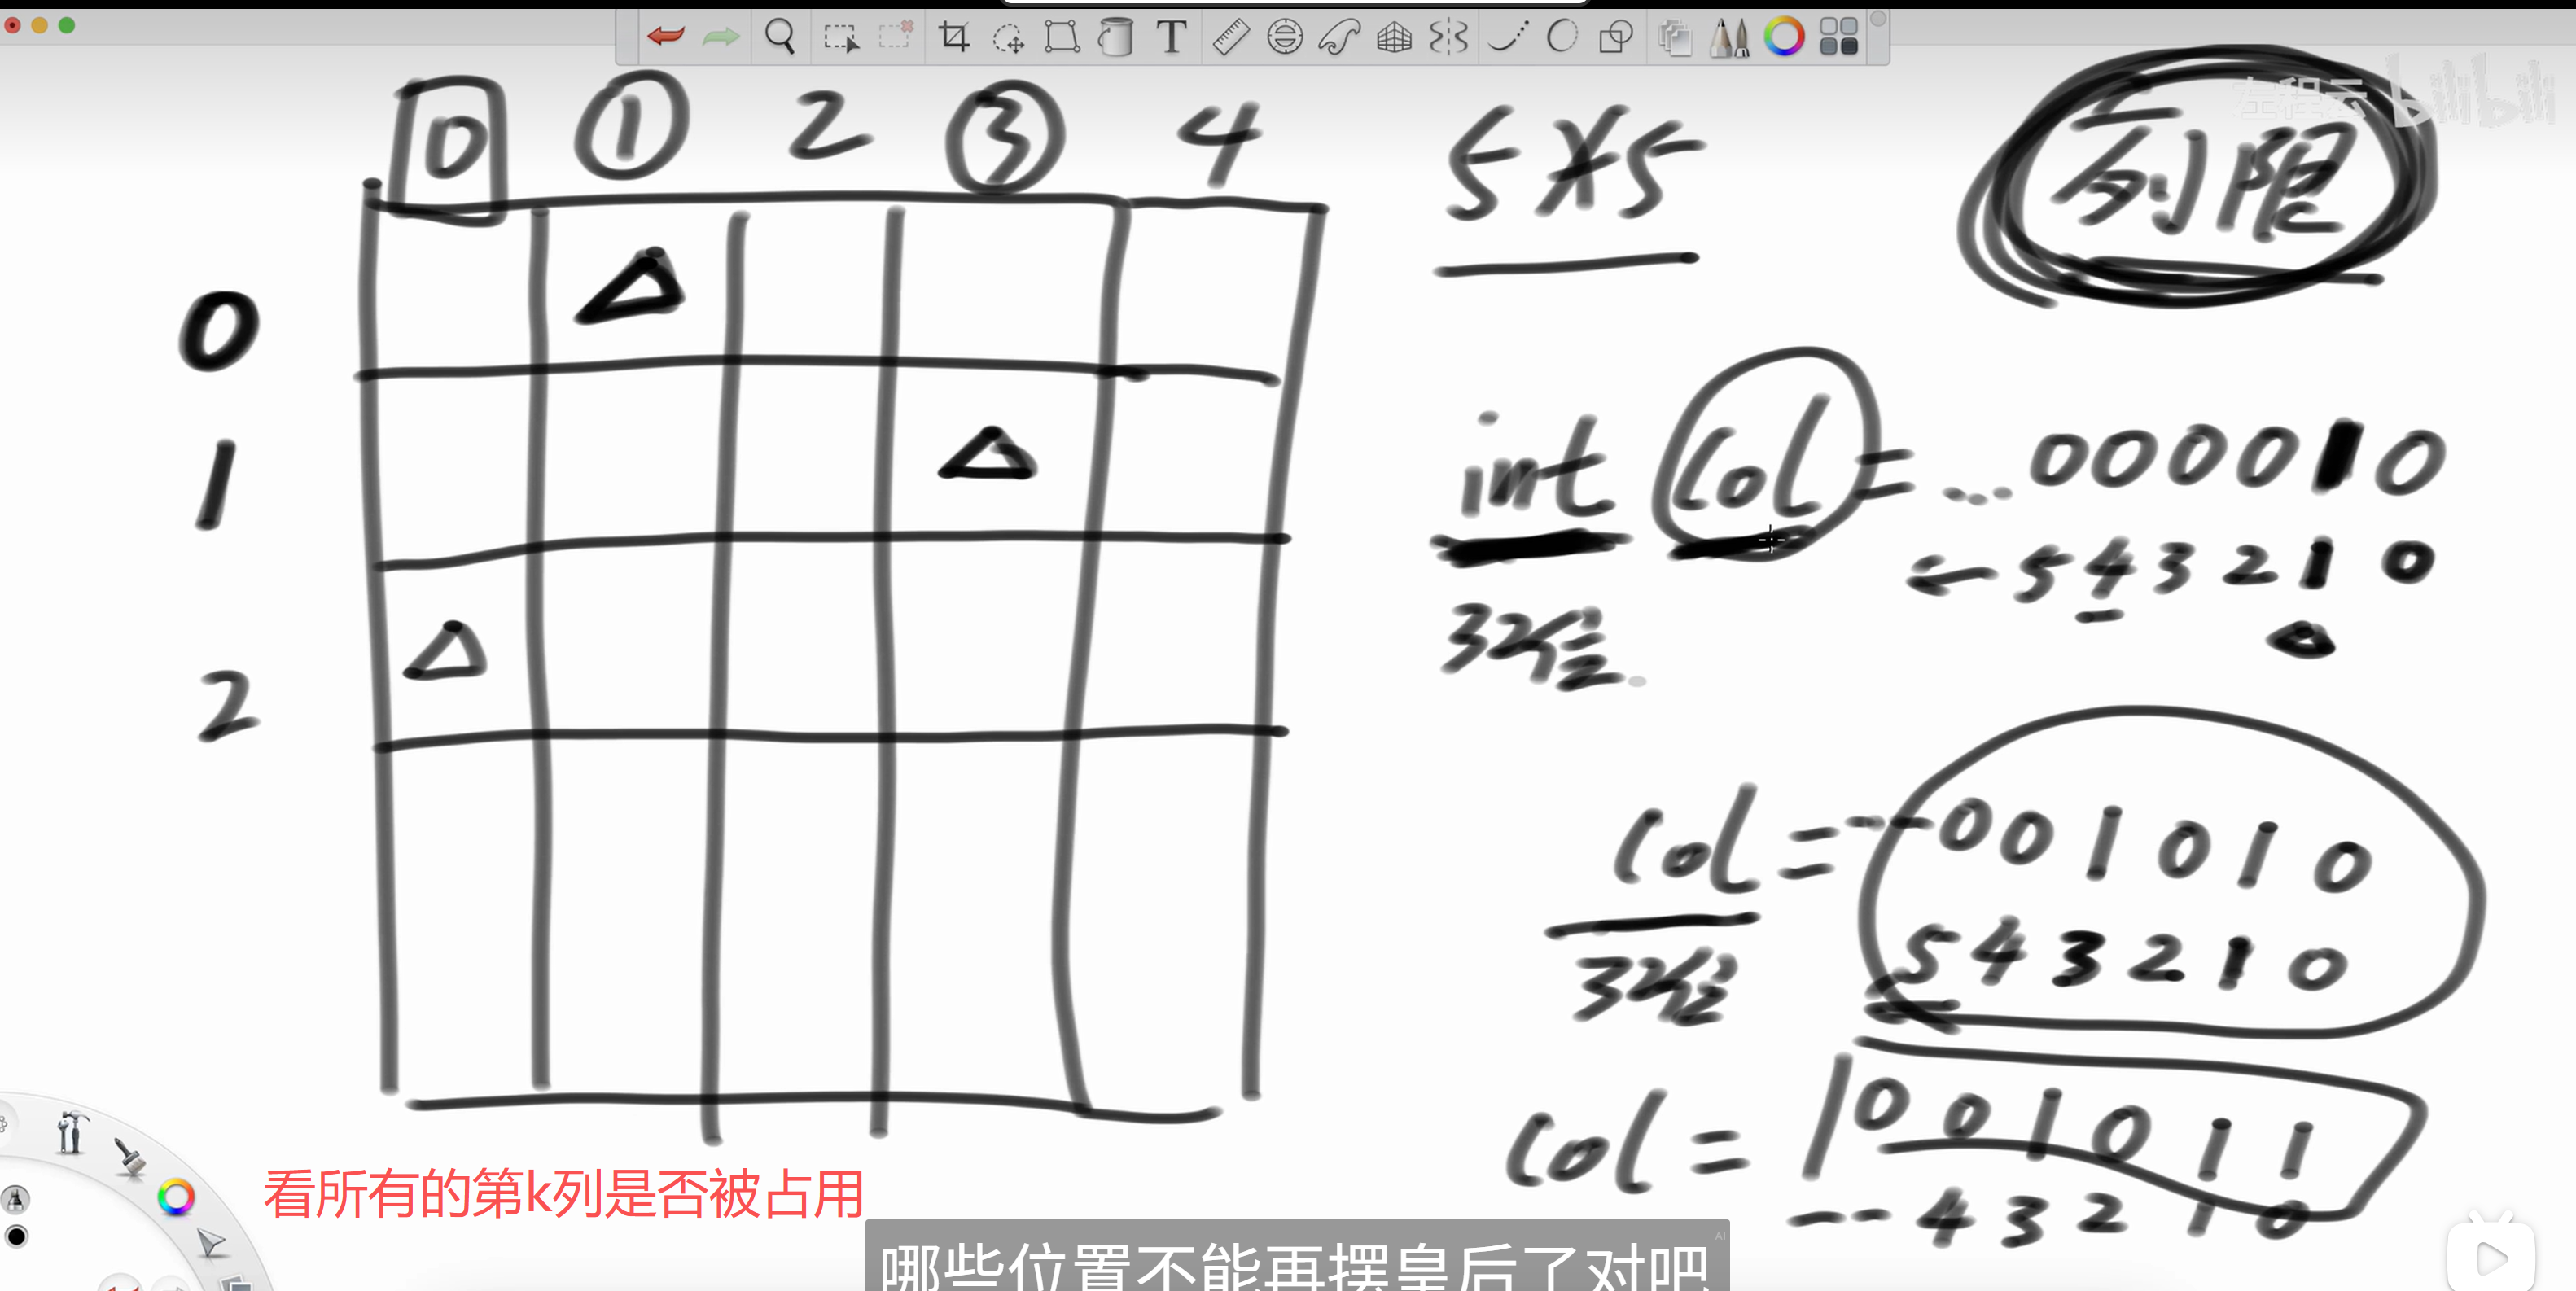 左程云 bilibili
0 1 2 3 4
5X5
列限
0
1
2
int col = ...000010
← 5 4 3 2 1 0
32位
col = ---001010
5 4 3 2 1 0
32位
col = 001011
--- 4 3 2 1 0
看所有的第k列是否被占用
哪些位置不能再摆皇后了对吧
AI